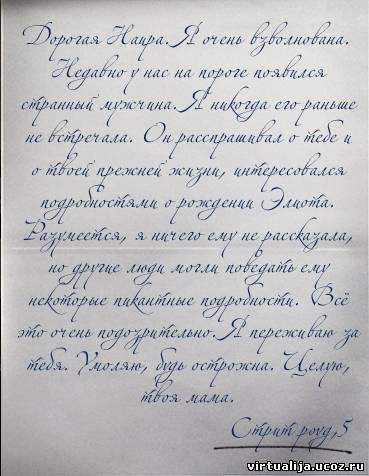 Дорогая Наира. Я очень взволнована.
Недавно у нас на пороге появился
странный мужчина. Я никогда его раньше
не встречала. Он расспрашивал о тебе и
о твоей прежней жизни, интересовался
подробностями о рождении Элиота.
Разумеется, я ничего ему не рассказала,
но другие люди могли поведать ему
некоторые пикантные подробности. Всё
это очень подозрительно. Я переживаю за
тебя. Умоляю, будь острожна. Целую,
твоя мама.
Стрит роуд,5
virtualija.ucoz.ru